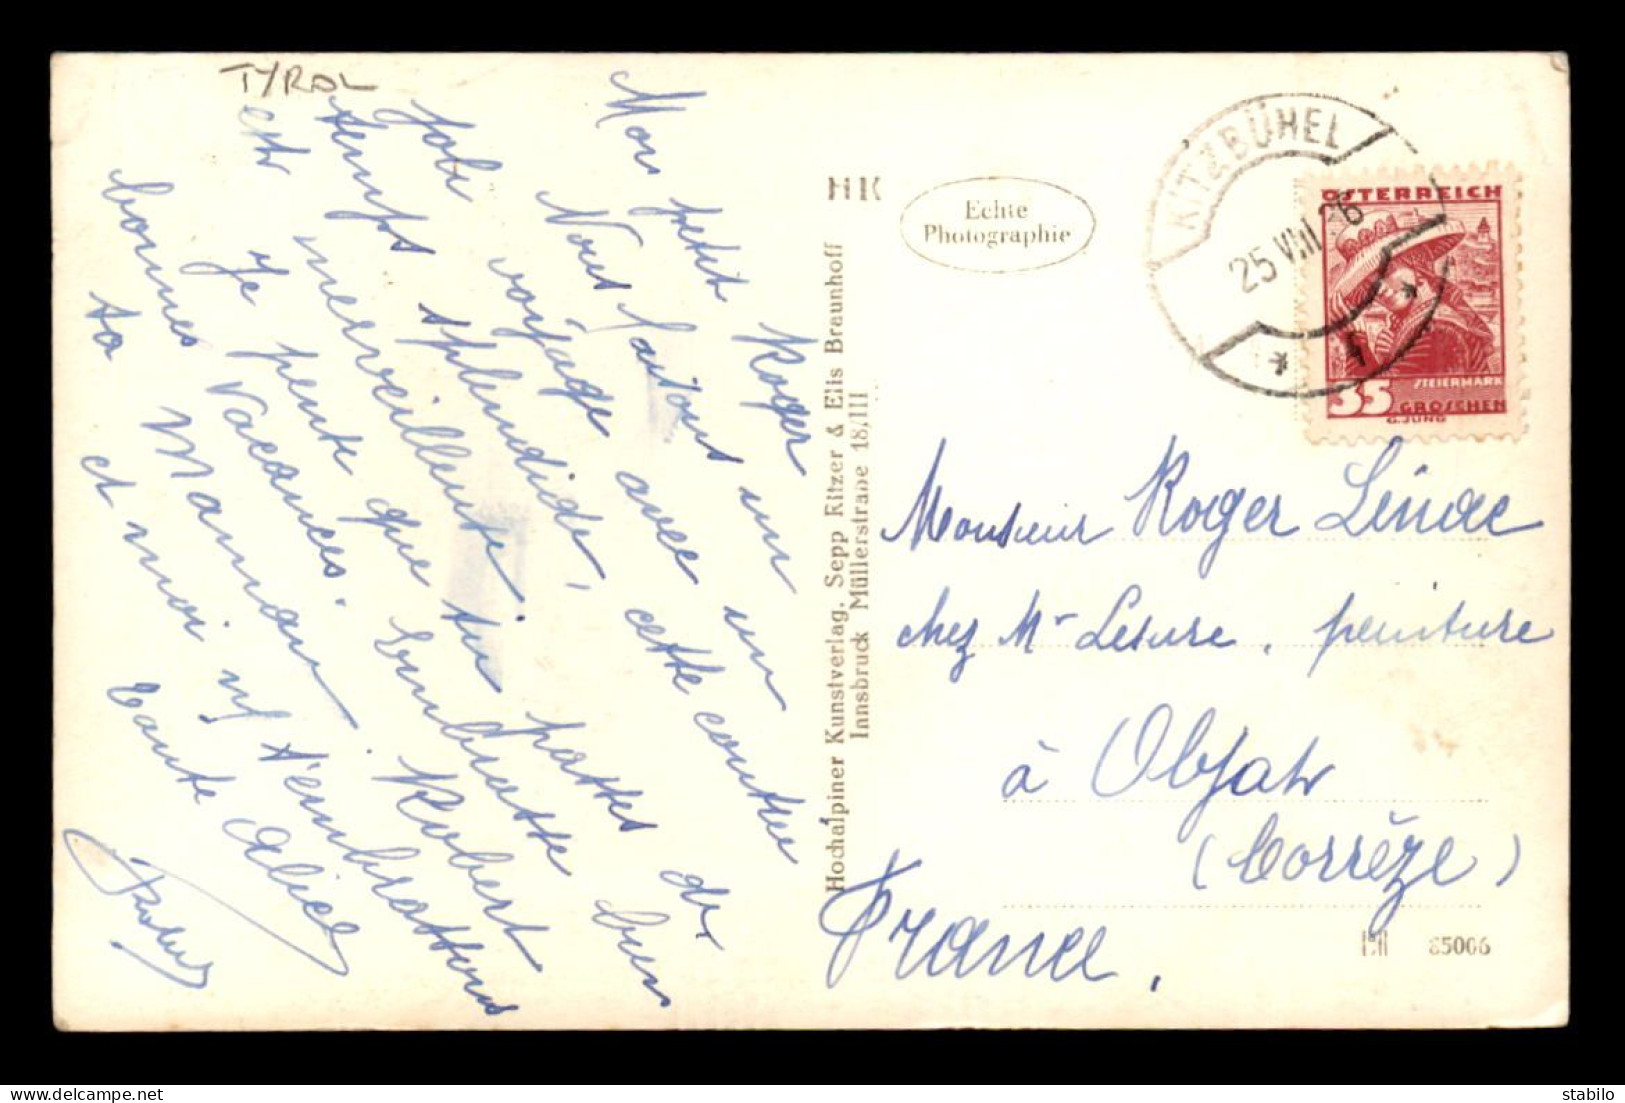 TYROL
Mon petit Roger
Nous faisons un
joli voyage avec un
temps splendide, cette contrée
est merveilleuse
Je pense que tu passes de
bonnes vacances. bien
ta Maman Robert
et moi t'embrassons
Tante Alice
HK
Echte
Photographie
Hochalpiner Kunstverlag, Sepp Ritzer & Elis Braunhoff
Innsbruck Müllerstraße 18/III
KITZBÜHEL
25 VIII 36
ÖSTERREICH
STEIERMARK
35 GROSCHEN
G.JUNG
Monsieur Roger Linac
chez Mr Lesure, peinture
à Objat
(Corrèze)
France.
85006
delcampe.net
stabilo